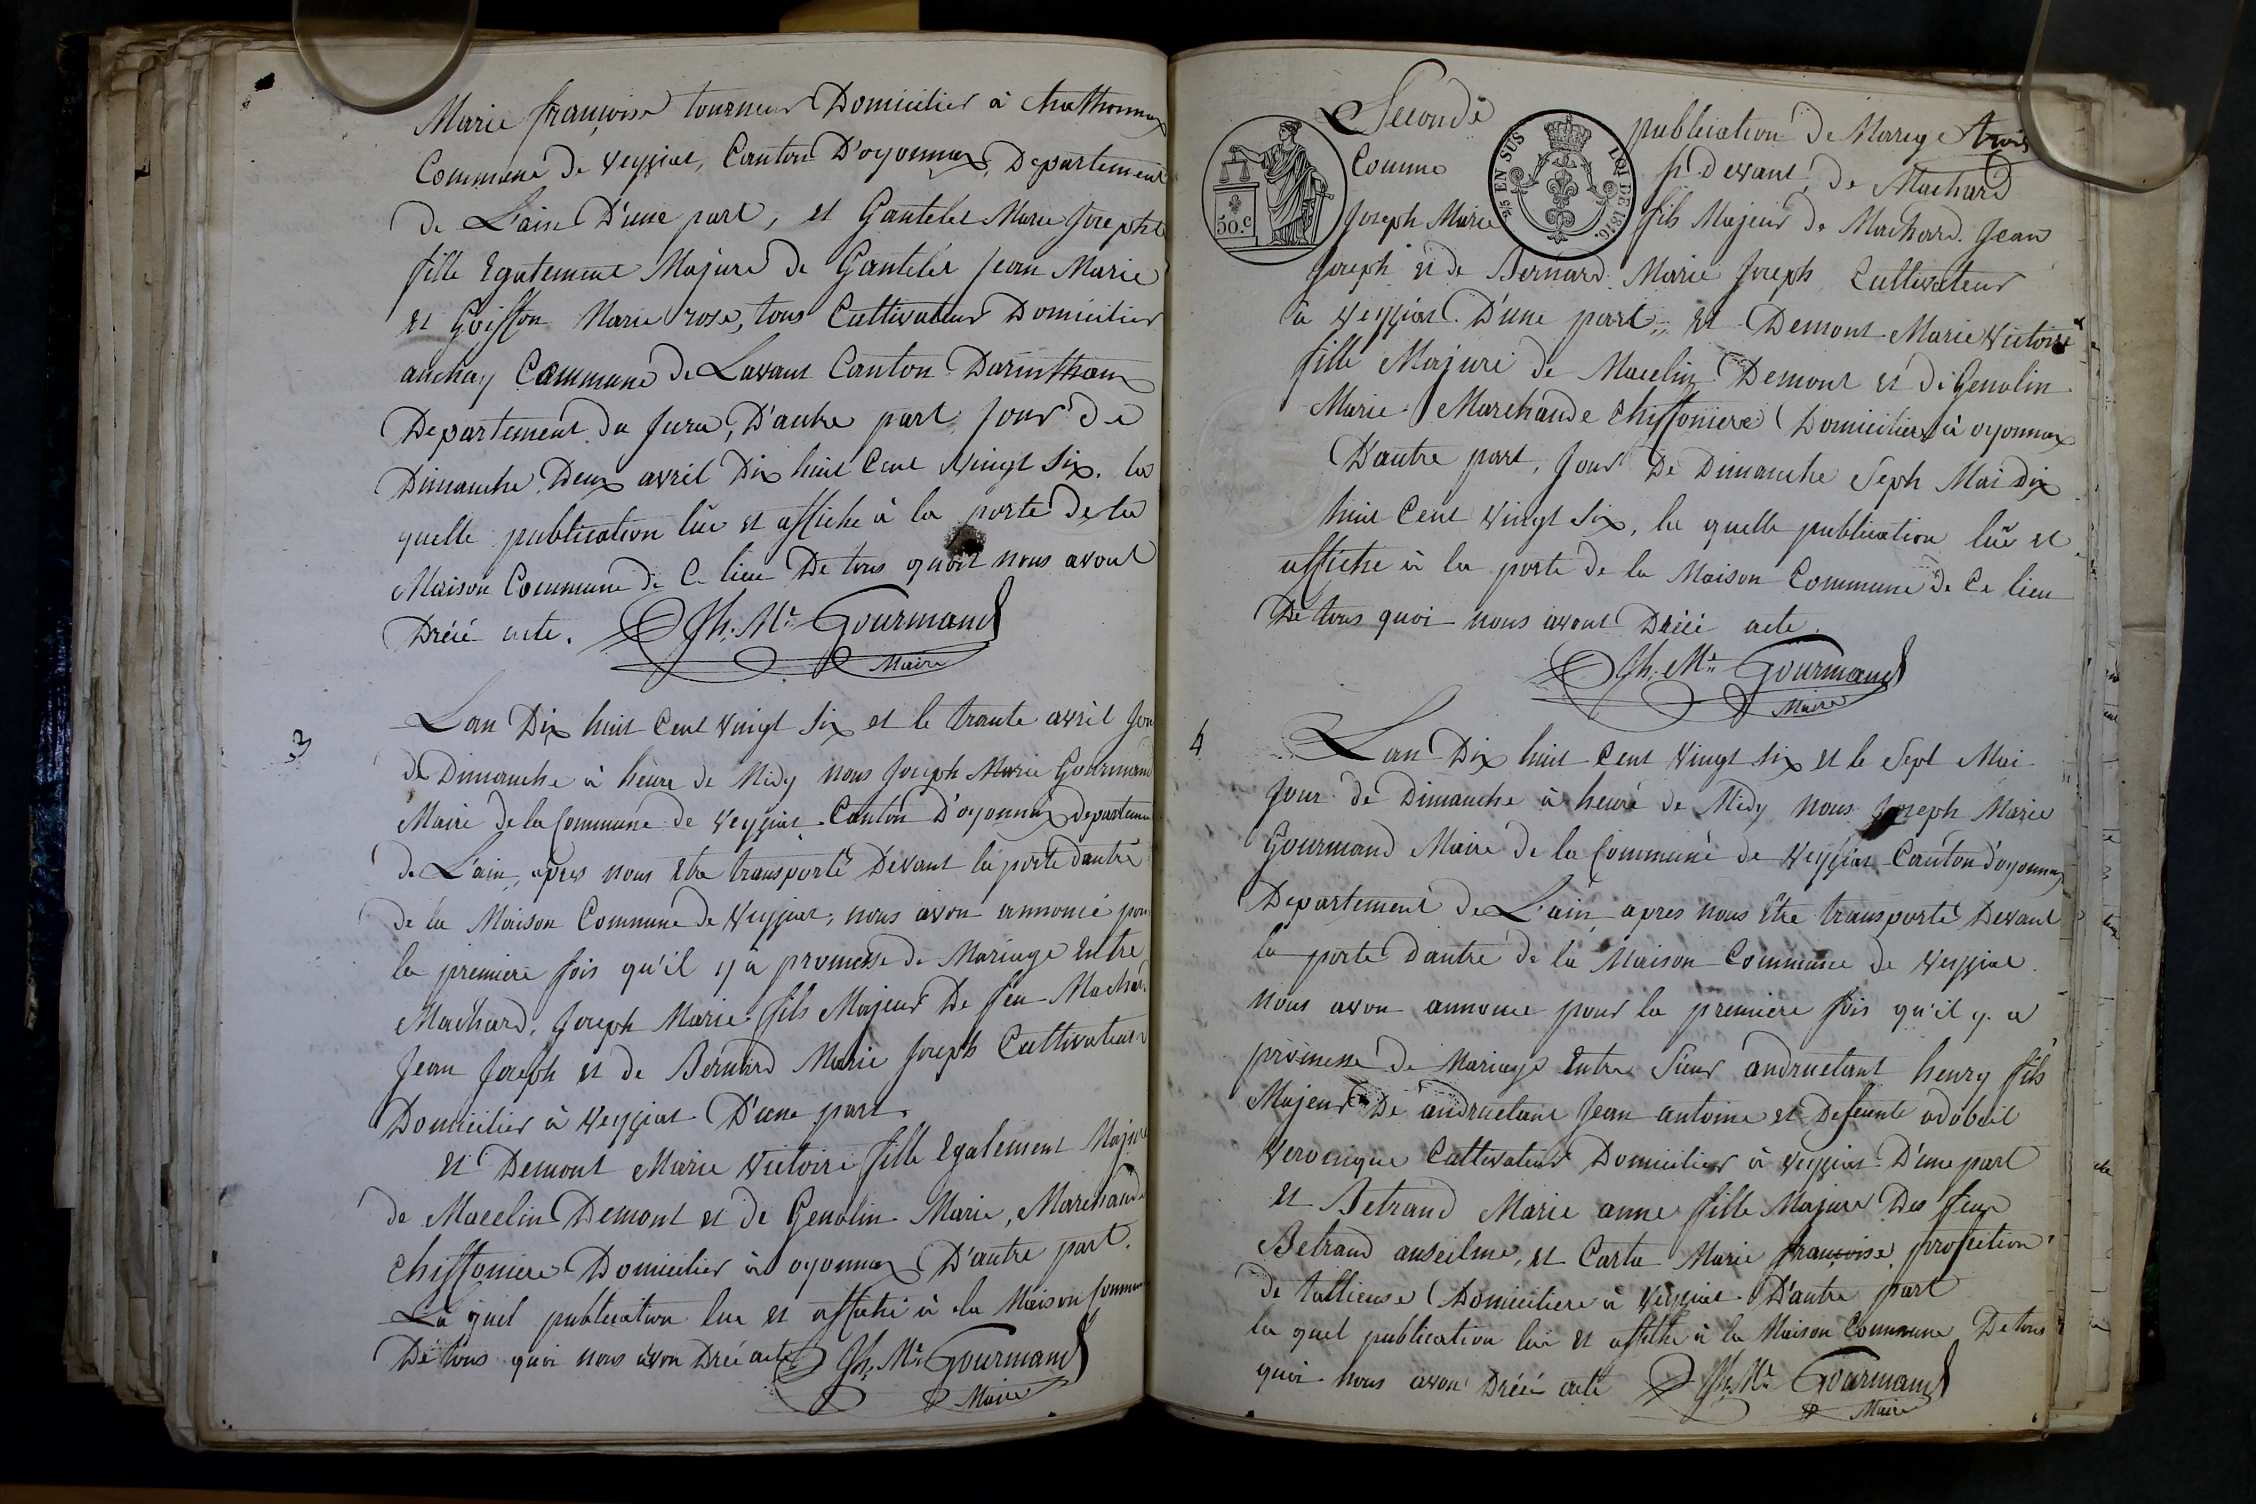 Marie françoise tourneur Domicilier à Chatthonnax
Commune de Veyziat, Canton D'oyonnax, Departement
de L'ain D'une part, et Gantelet Marie Josephte
fille Egatement Majure de Gantelet Jean Marie
et Goiffon Marie rose, tous Cultivateur Domicilier
anchay Commune de Lavant Canton Darinthaux
Departement du Jura, D'autre part Jour de
Dimanche Deux avril Dix huit Cent Vingt Six. la
quelle publication lüe et affiche à la porte de la
Maison Commune de Ce lieu De tous quoit nous avont
Dréié acte. Jh. Mie Gourmand
Maire
3
Lan Dix huit Cent Vingt Six et le trante avril Jour
de Dimanche à heure de Midy nous Joseph Marie Gourmand
Maire de la Commune de Veyziat Canton D'oyonnax departeme
de L'ain, apres nous Etre transporté Devant la porte dantré
de la Maison Commune de Veyziat, nous avon annoncé pour
la premiere fois qu'il y a promesse de Mariage Entre
Machard, Joseph Marie fils Majeur De feu Machar
Jean Joseph et de Bernard Marie Joseph Cultivateur
Domicilier à Veyziat D'une part.
et Demont Marie Victoire fille Egalement Majure
de Macelin Demont et de Genolin Marie, Marchande
Chiffoniere Domicilier à oyonnax D'autre part.
La quel publication lue et affiche à la Maison Commune
De tous quoi nous avon Dréié acte Jh. Mie Gourmand
Maire
Seconde publication de Marrage trois
50.c
3/5 EN SUS LOI DE 1816.
Comme si devant, de Machard
Joseph Marie fils Majeur de Machard Jean
Joseph et de Bernard Marie Joseph Cultivateur
a Veyziat D'une part, Et Demont Marie Victoire
fille Majure de Macelin Demont et de Genolin
Marie Marchande Chiffoniere Domicilier à oyonnax
D'autre part, Jour De Dimanche Seph Mai Dix
huit Cent Vingt Six, la quelle publication lüe et
affiche à la porte de la Maison Commune de Ce lieu
De tous quoi nous avont Dréié acte.
Jh. Mie Gourmand
Maire
4
Lan Dix huit Cent Vingt Six et le Sept Mai
Jour de Dimanche à heure de Midy nous Joseph Marie
Gourmand Maire de la Commune de Veyziat Canton d'oyonnax
Departement de L'ain apres nous Etre transporté Devant
la porte dantré de la Maison Commune de Veyziat
nous avon annonce pour la premiere fois qu'il y a
promesse de Mariage Entre Sieur andruetant henry fils
Majeur De andruetant Jean antoine et Defeunte adobeit
Veronique Cultivateur Domicilier à Veyziat D'une part
et Betrand Marie anne fille Majure Des feux
Betrand anseilme, et Carta Marie françoise, profection
de tallieuse Domiciliere à Veyziat D'autre part
la quel publication lue et affiche à la Maison Commune De tous
quoi nous avon Dréié acte Jh. Mie Gourmand
Maire